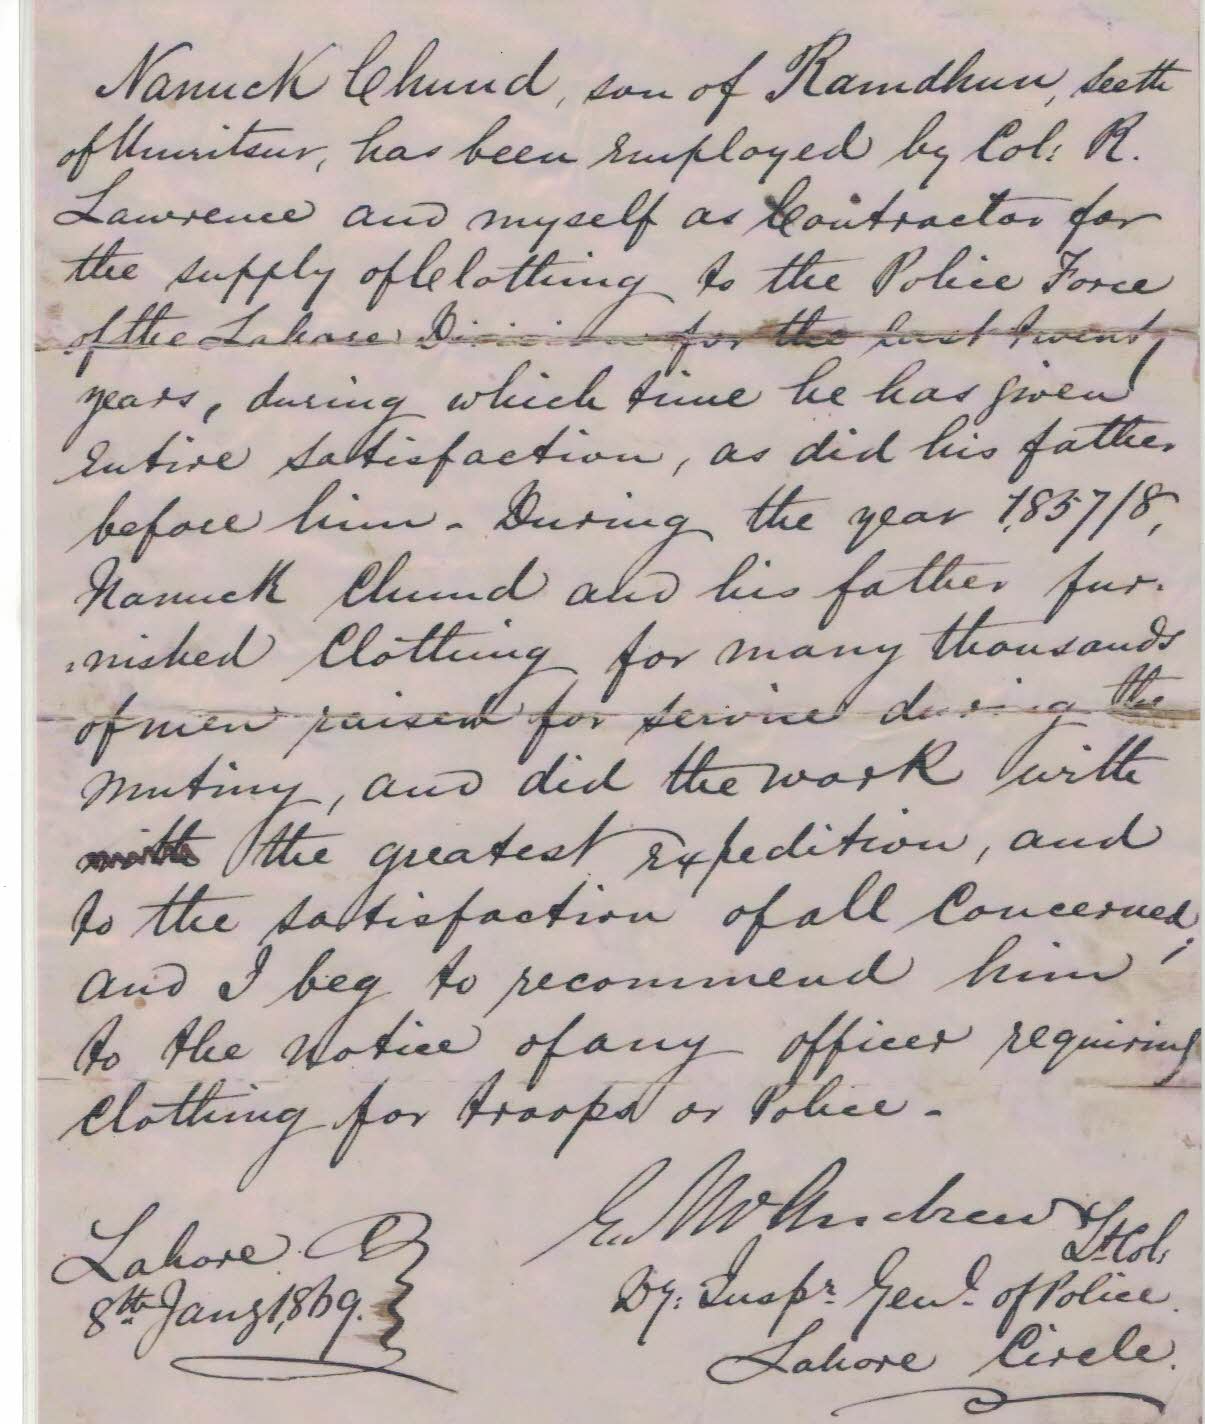 Nanuck Chund, son of Ramdhun, seeth
of Umritsur, has been Employed by Col: R.
Lawrence and myself as Contractor for
the supply of Clothing to the Police Force
of the Lahore Division for the last twenty
years, during which time he has given
Entire satisfaction, as did his father
before him - During the year 1857/8,
Nanuck Chund and his father fur-
nished Clothing for many thousands
of men raised for service during the
Mutiny, and did the work with
the greatest Expedition, and
to the satisfaction of all Concerned,
and I beg to recommend him
to the notice of any officer requiring
Clothing for troops or Police -
McAndrew Lt Col:
Lahore
Dy: Inspr. Genl. of Police
8th Jany 1869.
Lahore Circle.